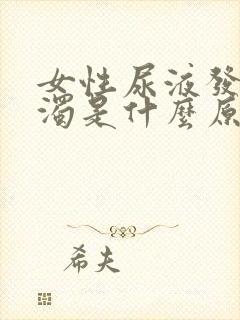 女性尿液發
濁是什麼原
希夫